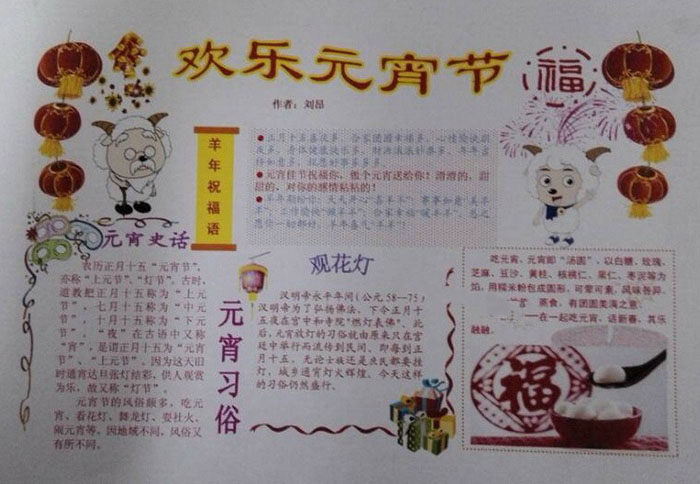 欢乐元宵节
福
作者：刘昂
羊年祝福语
●正月十五喜庆多，合家团圆幸福多，心情愉快朋
●元宵佳节祝福你，做个元宵送给你！滑滑的，甜
甜的，对你的感情粘粘的！
元宵史话
农历正月十五“元宵节”，
亦称“上元节”、“灯节”。古时，
道教把正月十五称为“上元
节”，七月十五称为“中元
节”，十月十五称为“下元
节”，“夜”在古语中又称
“宵”，是谓正月十五为“元宵
节”、“上元节”。因为这天旧
时通宵达旦张灯结彩，供人观赏
为乐，故又称“灯节”。
元宵节的风俗颇多，吃元
宵、看花灯、舞龙灯、耍社火、
闹元宵等，因地域不同，风俗又
有所不同。
元宵习俗
观花灯
汉明帝永平年间(公元58—75)
汉明帝为了弘扬佛法，下令正月十
五夜在宫中和寺院“燃灯表佛”。此
后，元宵放灯的习俗就由原来只在宫
廷中举行而流传到民间。即每到正
月十五，无论士族还是庶民都要挂
灯，城乡通宵灯火辉煌。今天这样
的习俗仍然盛行。
吃元宵。元宵即“汤圆”，以白糖、玫瑰、
芝麻、豆沙、黄桂、核桃仁、果仁、枣泥等为
馅，用糯米粉包成圆形，可荤可素，风味各异。
蒸食，有团圆美满之意。
在一起吃元宵，话新春，其乐
融融。
福